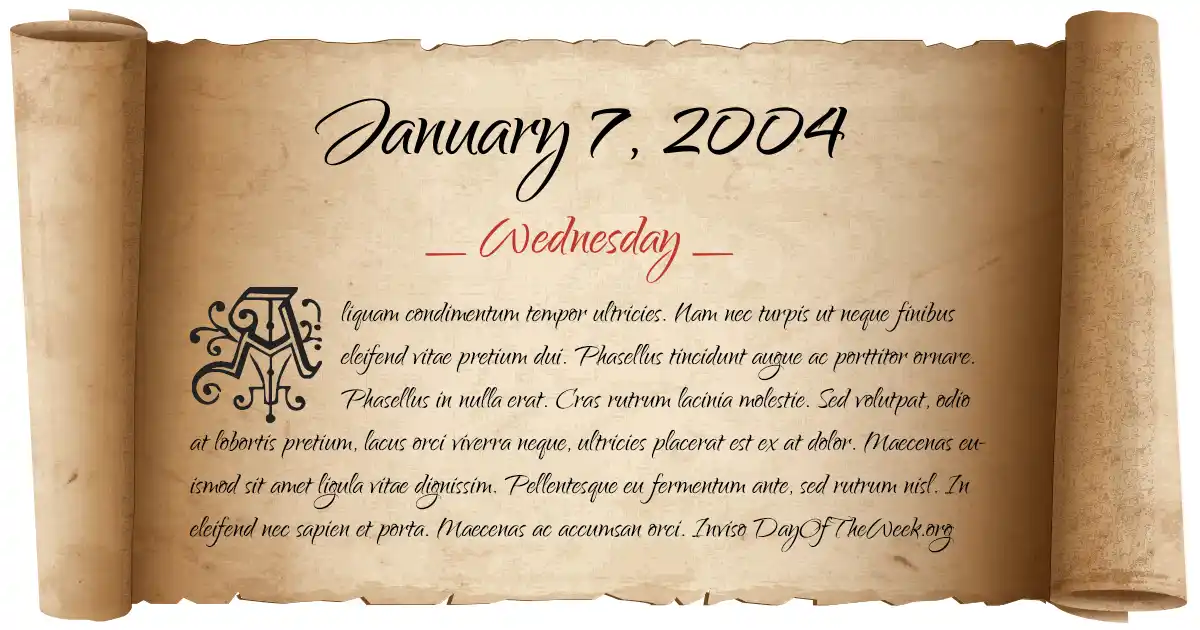 January 7, 2004
__ Wednesday __
Aliquam condimentum tempor ultricies. Nam nec turpis ut neque finibus
eleifend vitae pretium dui. Phasellus tincidunt augue ac porttitor ornare.
Phasellus in nulla erat. Cras rutrum lacinia molestie. Sed volutpat, odio
at lobortis pretium, lacus orci viverra neque, ultricies placerat est ex at dolor. Maecenas eu-
ismod sit amet ligula vitae dignissim. Pellentesque eu fermentum ante, sed rutrum nisl. In
eleifend nec sapien et porta. Maecenas ac accumsan orci. Inviso DayOfTheWeek.org